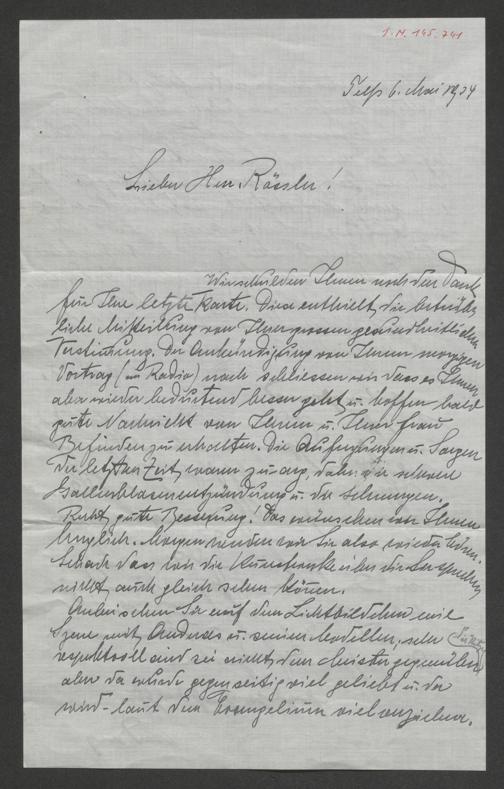 I. N. 145.741
Telfs 6. Mai 1934
Lieber Herr Rössler!
Wir schulden Ihnen noch den Dank
für Ihre letzte Karte. Diese enthielt die betrüb-
liche Mitteilung von Ihrer grossen gesundheitlichen
Verstimmung. Der Ankündigung von Ihrem morgigen
Vortrag (im Radio) nach schliessen wir dass es Ihnen
aber wieder bedeutend besser geht u. hoffen bald
gute Nachricht von Ihnen u. Ihrer Frau
Befinden zu erhalten. Die Aufregungen u. Sorgen
der letzten Zeit waren zu arg, daher die schwere
Gallenblasenentzündung u. die
Recht gute Besserung! Das wünschen wir Ihnen
Morgen werden wir Sie also wieder hören.
Schade dass wir die Kunstwerke über die Sie sprechen
nicht auch gleich sehen können.
Anbei sehen Sie auf dem Lichtbildchen eine
Szene mit Andreas u. seinen Modellen, sehr
respektvoll sind sie nicht dem Meister gegenüber
aber da wurde gegenseitig viel geliebt u. da
wird - laut dem Evangelium viel verziehen.